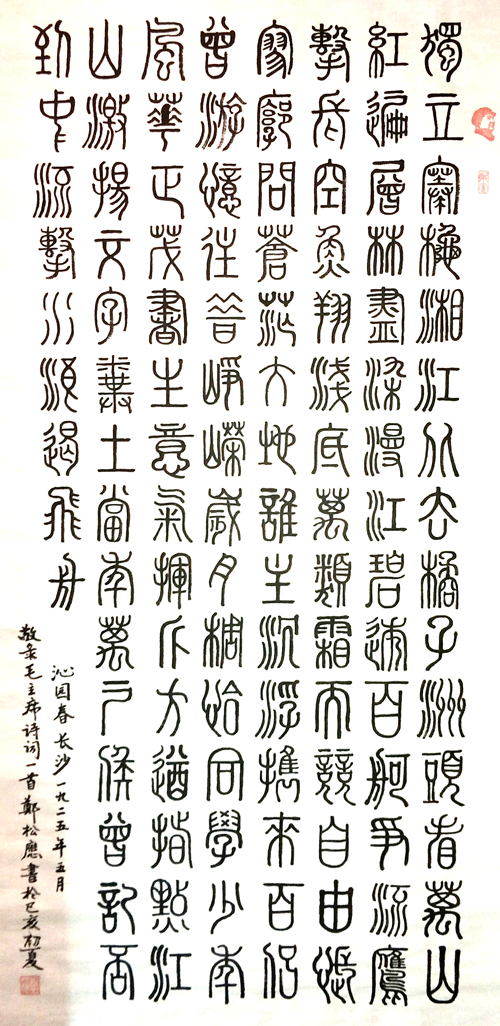 獨立寒秋湘江北去橘子洲頭看萬山
紅遍層林盡染漫江碧透百舸爭流鷹
擊長空魚翔淺底萬類霜天競自由悵
寥廓問蒼茫大地誰主沉浮攜來百侶
曾游憶往昔崢嶸歲月稠恰同學少年
風華正茂書生意氣揮斥方遒指點江
山激揚文字糞土當年萬戶侯曾記否
到中流擊水浪遏飛舟
沁园春 长沙 一九二五年五月
敬录毛主席诗词一首 鄭松應書於己亥初夏